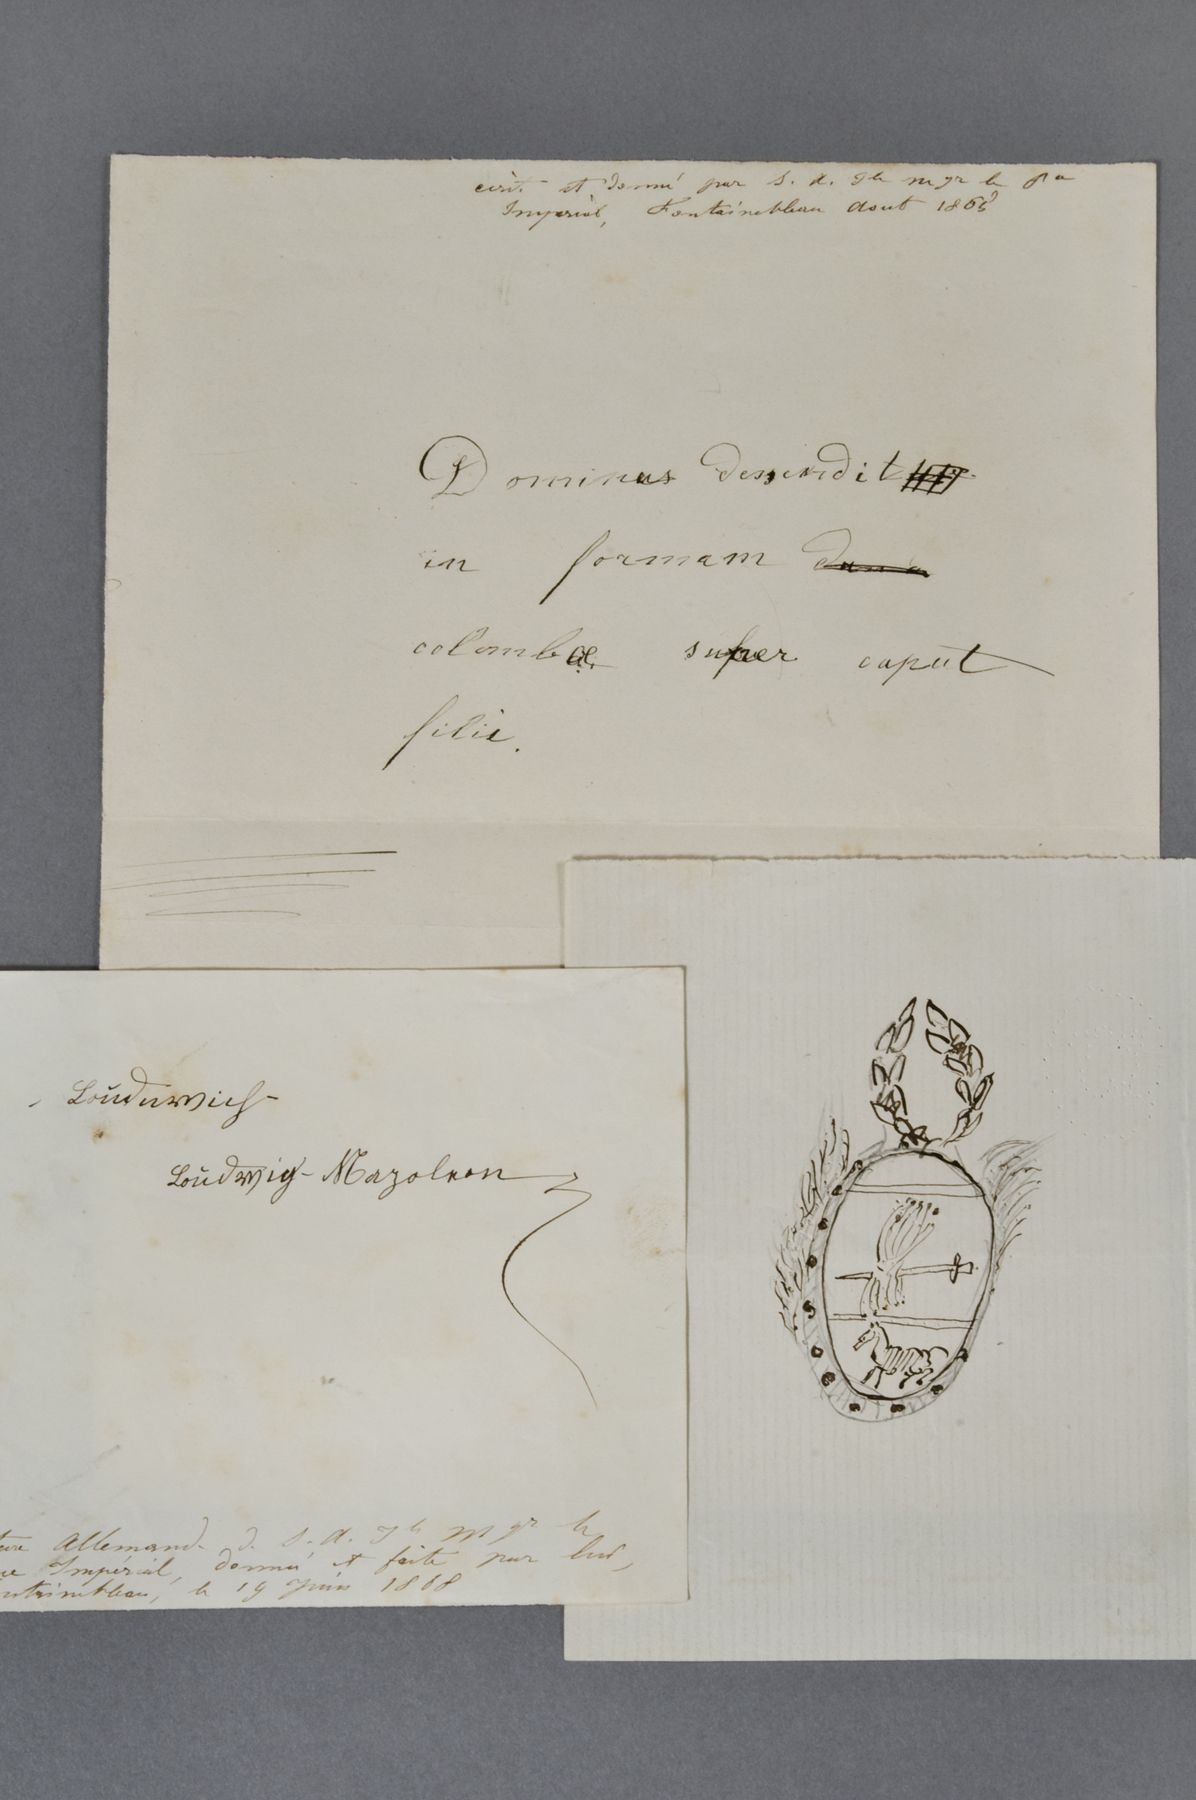 écrit et donné par S. A. Ile Mgr le Pce
Impérial, Fontainebleau Aout 1865
Dominus dessendit
in formam dans
colombæ super caput
filii.
Loŭdnwich
Loŭdwig-Nazoleon
Allemand. d. S. A. Ile Mgr le
Impérial, donné et faite par lui,
le 19 Juin 1868